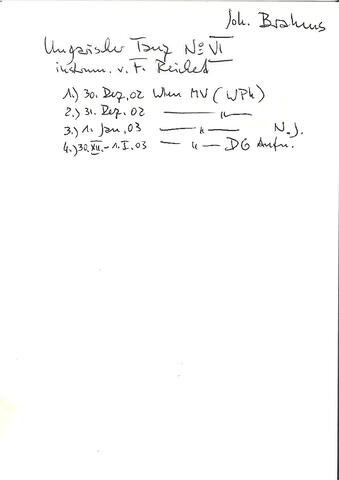 Joh. Brahms
Ungarischer Tanz No VI
instrum. v. F. Reichert
1.) 30. Dez. 02 Wien MV (WPh)
2.) 31. Dez. 02 — " —
3.) 1. Jan. 03 — " — N.J.
4.) 30.XII.-1.I.03 — " — DG Aufn.